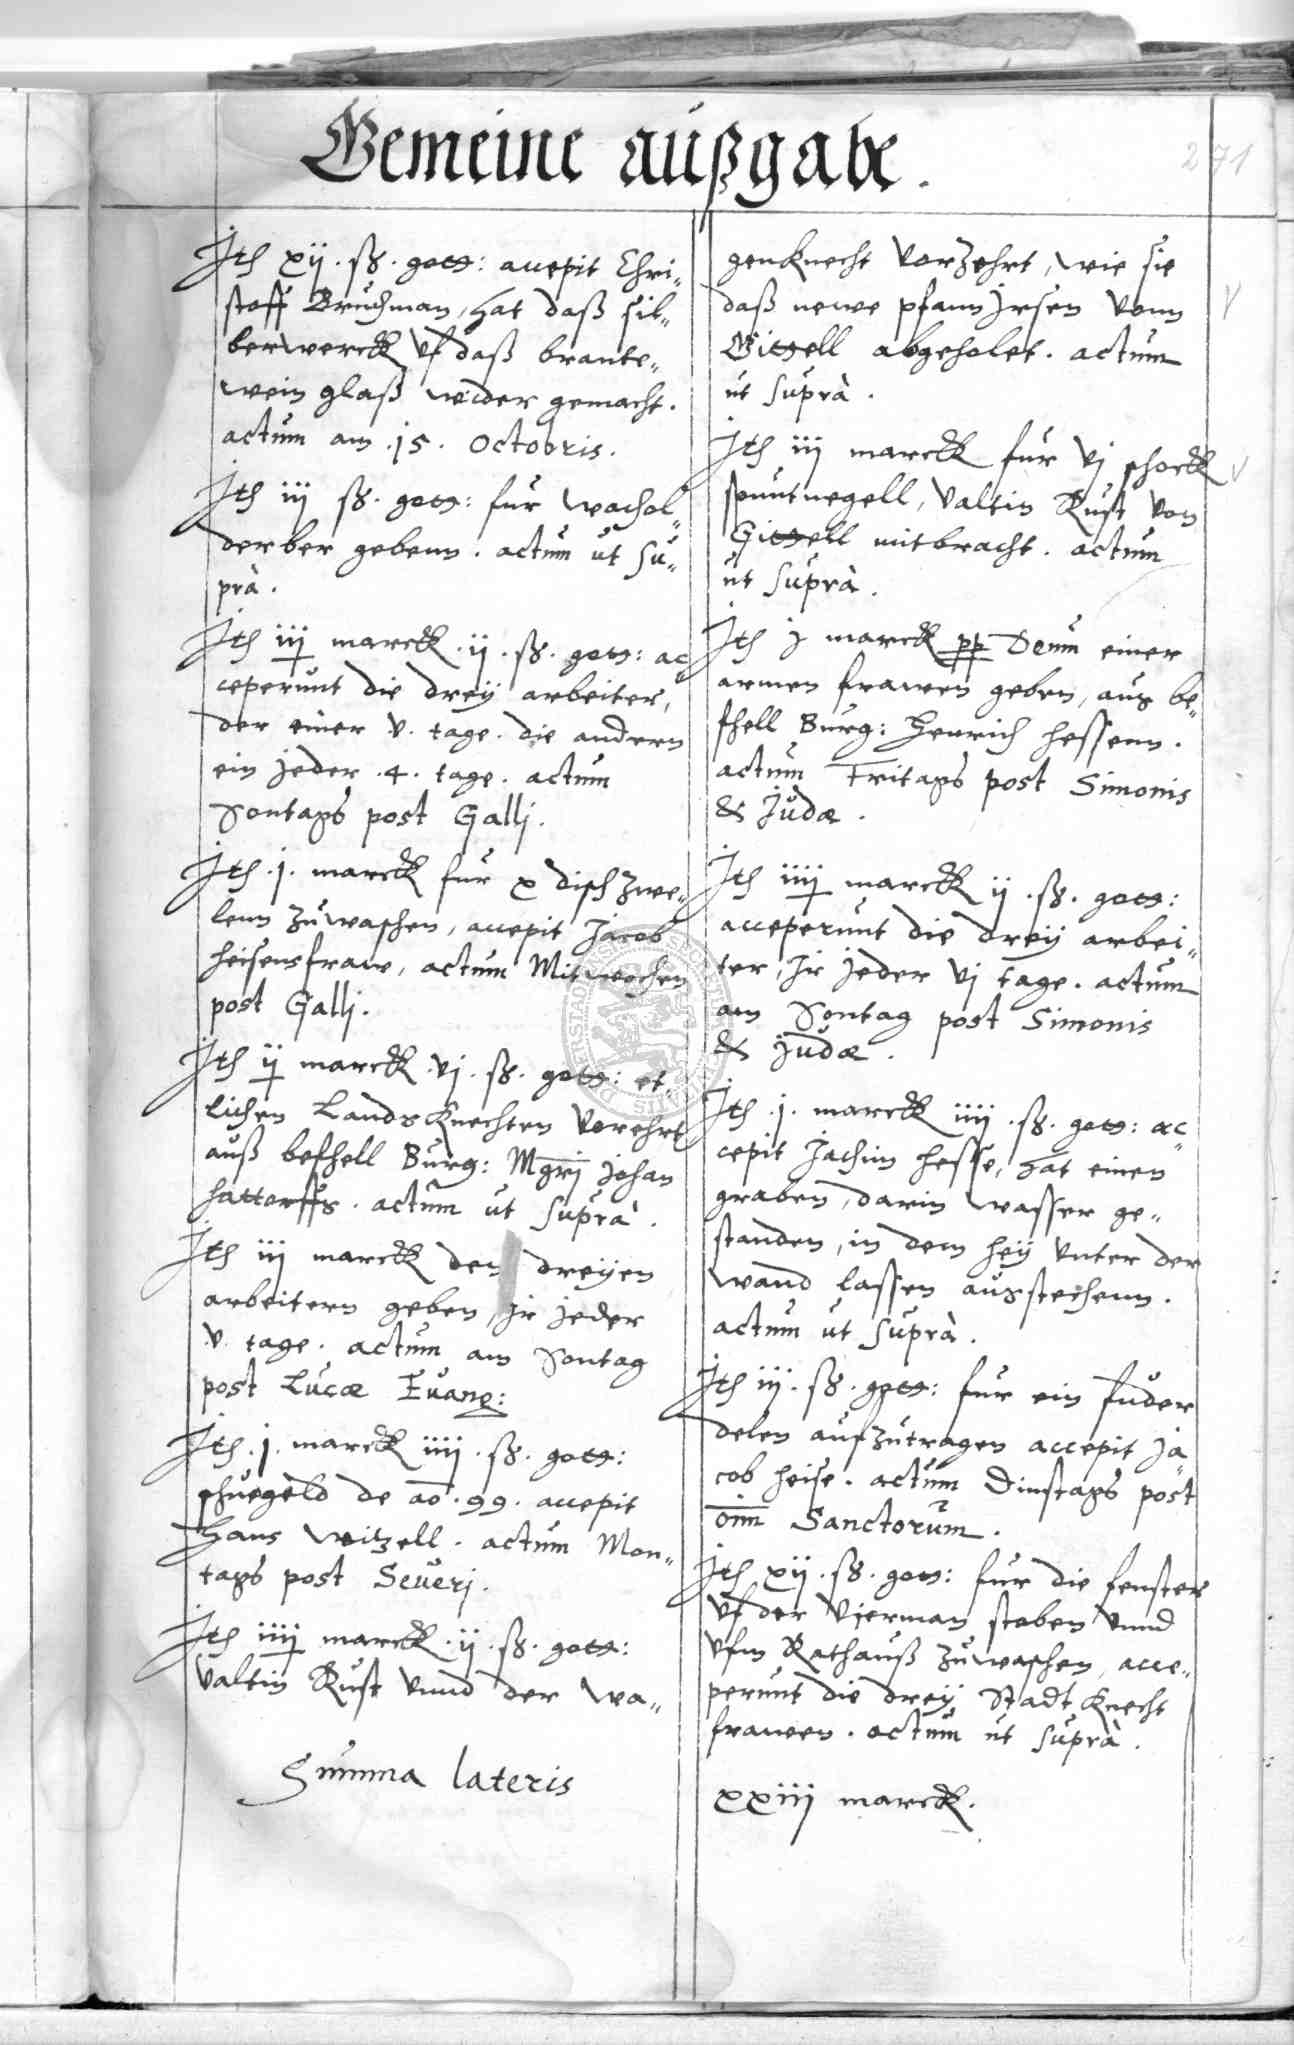 Gemeine außgabe.
271
Jtem xij. ß. gott: accepit Chri„
stoff Bruchman, hat daß sil„
berwerck vf daß brante„
wein glaß wider gemacht.
actum am .15. Octobris.
Jtem iij ß. gott: fur wachol„
derber gebenn. actum ut su„
prà.
Jtem iij marck .ij. ß. gott: ac„
ceperunt die dreÿ arbeiter,
der einer .v. tage. die andern
ein jeder .4. tage. actum
Sontags post Galli.
Jtem .j. marck fur x dischzwe„
lenn zuwaschen, accepit Jacob
heisensfrawe, actum Mitwochen
post Galli.
Jtem ij marck .vj. ß. gott: et„
lichen Landsknechten verehrt
auß befhell Burg: Mgri Johan
hattorffs. actum ut suprà.
Jtem iij marck den dreÿen
arbeitern geben, jr jeder
.v. tage. actum am Sontag
post Lucæ Euang:
Jtem .j. marck iiij. ß. gott:
schuegeld de ao .99. accepit
Hans Weitzell. actum Mon„
tags post Seueri.
Jtem iiij marck .ij. ß. gott:
Valtin Rust vnnd der wa„
Summa lateris
genknecht verzehrt, wie sie
daß newe pfannJrsen vonn
Gittell abgeholet. actum
ut suprà.
Jtem iij marck fur vj schock
spuntnegell, Valtin Rust von
Gittell mitbracht. actum
ut suprà.
Jtem j marck pp Deum einer
armen frawen geben, aus be„
fhell Burg: Henrich hessenn.
actum Fritags post Simonis
& Judæ.
Jtem iiij marck ij. ß. gott:
acceperunt die dreÿ arbei„
ter, jr jeder vj tage. actum
am Sontag post Simonis
& Judæ.
Jtem .j. marck iiij. ß. gott: ac„
cepit Jachim hesse, hat einen
graben, darin wasser ge„
standen, in dem heÿ vnter der
wand lassen ausstechenn.
actum ut suprà.
Jtem iij. ß. gott: fur ein fuder
delen aufzutragen accepit Ja„
cob heise. actum Dinstags post
oim Sanctorum.
Jtem xij. ß. gott: fur die fenster
vf der Vierman stoben vnnd
vfm Rathauß zuwaschen, acce„
perunt die dreÿ Stadtknecht
frauwen. actum ut suprà.
xxiij marck.